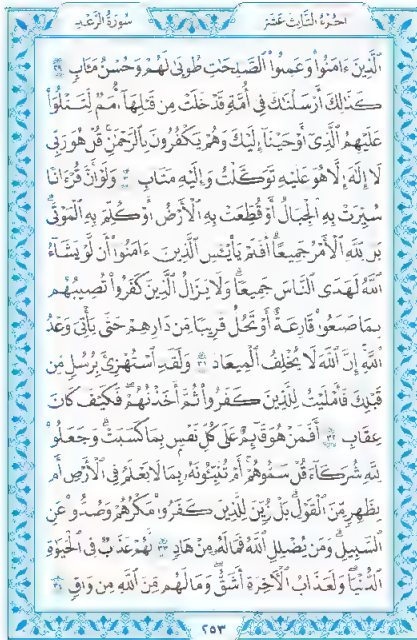 سُورَةُ الرَّعْدِ الجُزْءُ الثَّالِثَ عَشَرَ
الَّذِينَ ءَامَنُوا۟ وَعَمِلُوا۟ الصَّٰلِحَٰتِ طُوبَىٰ لَهُمْ وَحُسْنُ مَـَٔابٍ ٢٩
كَذَٰلِكَ أَرْسَلْنَٰكَ فِىٓ أُمَّةٍ قَدْ خَلَتْ مِن قَبْلِهَآ أُمَمٌ لِّتَتْلُوَا۟
عَلَيْهِمُ الَّذِىٓ أَوْحَيْنَآ إِلَيْكَ وَهُمْ يَكْفُرُونَ بِالرَّحْمَٰنِ ۚ قُلْ هُوَ رَبِّى
لَآ إِلَٰهَ إِلَّا هُوَ عَلَيْهِ تَوَكَّلْتُ وَإِلَيْهِ مَتَابِ ٣٠ وَلَوْ أَنَّ قُرْءَانًا
سُيِّرَتْ بِهِ الْجِبَالُ أَوْ قُطِّعَتْ بِهِ الْأَرْضُ أَوْ كُلِّمَ بِهِ الْمَوْتَىٰ ۗ
بَل لِّلَّهِ الْأَمْرُ جَمِيعًا ۗ أَفَلَمْ يَا۟يْـَٔسِ الَّذِينَ ءَامَنُوٓا۟ أَن لَّوْ يَشَآءُ
اللَّهُ لَهَدَى النَّاسَ جَمِيعًا ۗ وَلَا يَزَالُ الَّذِينَ كَفَرُوا۟ تُصِيبُهُم
بِمَا صَنَعُوا۟ قَارِعَةٌ أَوْ تَحُلُّ قَرِيبًا مِّن دَارِهِمْ حَتَّىٰ يَأْتِىَ وَعْدُ
اللَّهِ ۚ إِنَّ اللَّهَ لَا يُخْلِفُ الْمِيعَادَ ٣١ وَلَقَدِ اسْتُهْزِئَ بِرُسُلٍ مِّن
قَبْلِكَ فَأَمْلَيْتُ لِلَّذِينَ كَفَرُوا۟ ثُمَّ أَخَذْتُهُمْ ۖ فَكَيْفَ كَانَ
عِقَابِ ٣٢ أَفَمَنْ هُوَ قَآئِمٌ عَلَىٰ كُلِّ نَفْسٍۭ بِمَا كَسَبَتْ ۗ وَجَعَلُوا۟
لِلَّهِ شُرَكَآءَ قُلْ سَمُّوهُمْ ۚ أَمْ تُنَبِّـُٔونَهُۥ بِمَا لَا يَعْلَمُ فِى الْأَرْضِ أَم
بِظَٰهِرٍ مِّنَ الْقَوْلِ ۗ بَلْ زُيِّنَ لِلَّذِينَ كَفَرُوا۟ مَكْرُهُمْ وَصُدُّوا۟ عَنِ
السَّبِيلِ ۗ وَمَن يُضْلِلِ اللَّهُ فَمَا لَهُۥ مِنْ هَادٍ ٣٣ لَّهُمْ عَذَابٌ فِى الْحَيَوٰةِ
الدُّنْيَا ۖ وَلَعَذَابُ الْءَاخِرَةِ أَشَقُّ ۖ وَمَا لَهُم مِّنَ اللَّهِ مِن وَاقٍ ٣٤
٢٥٣